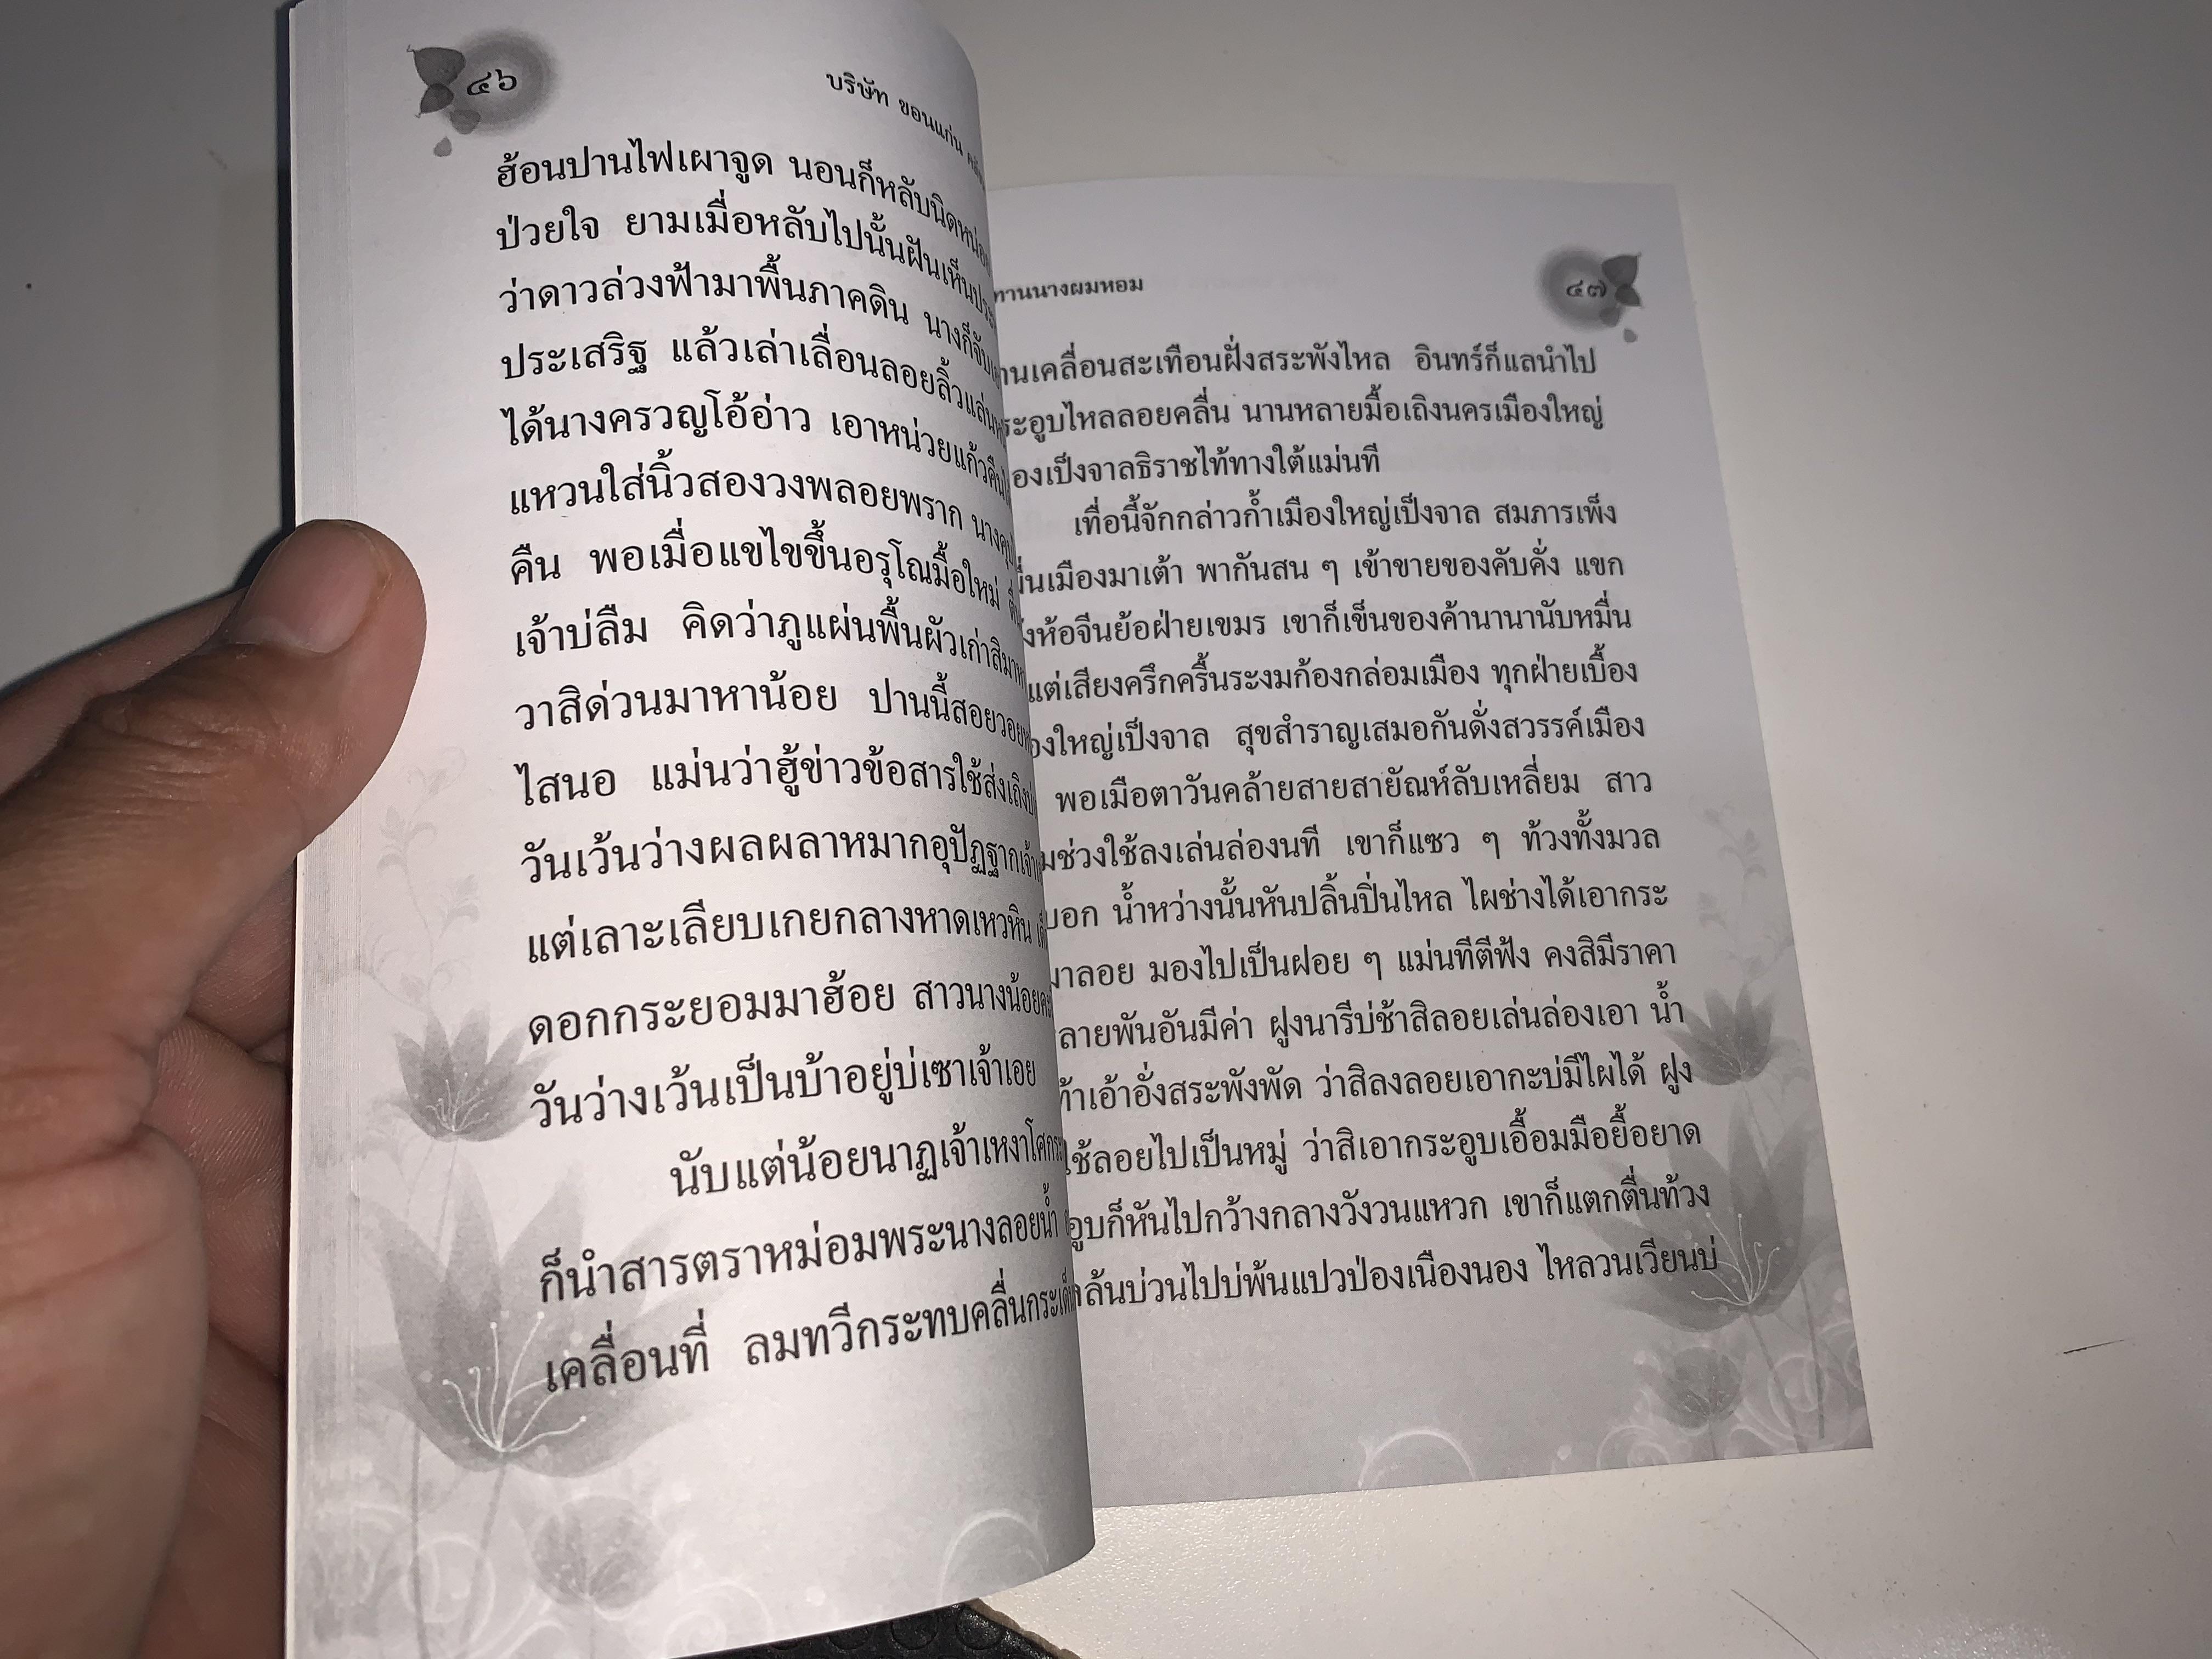 ๔๖
บริษัท ขอนแก่น
ฮ้อนปานไฟเผาจูด นอนก็หลับนิดหน่อย
ป่วยใจ ยามเมื่อหลับไปนั้นฝันเห็น
ว่าดาวล่วงฟ้ามาพื้นภาคดิน นางก็จับ
ประเสริฐ แล้วเล่าเลื่อนลอยลิ้วแล่น
ได้นางครวญโอ้อ่าว เอาหน่วยแก้วคืน
แหวนใส่นิ้วสองวงพลอยพราก นาง
คืน พอเมื่อแขไขขึ้นอรุโณมื้อใหม่
เจ้าบ่ลืม คิดว่าภูแผ่นพื้นผัวเก่าสิมา
วาสิด่วนมาหาน้อย ปานนี้สอยวอย
ไสนอ แม่นว่าฮู้ข่าวข้อสารใช้ส่งเถิง
วันเว้นว่างผลผลาหมากอุปัฏฐากเจ้า
แต่เลาะเลียบเกยกลางหาดเหวหิน
ดอกกระยอมมาฮ้อย สาวนางน้อย
วันว่างเว้นเป็นบ้าอยู่บ่เซาเจ้าเอย
นับแต่น้อยนาฏเจ้าเหงาโศก
ก็นำสารตราหม่อมพระนางลอยน้ำ
เคลื่อนที่ ลมทวีกระทบคลื่น
ทานนางผมหอม
๔๗
เคลื่อนสะเทือนฝั่งสระพังไหล อินทร์ก็แลนำไป
ระอูบไหลลอยคลื่น นานหลายมื้อเถิงนครเมืองใหญ่
องเป็งจาลธิราชไท้ทางใต้แม่นที
เทื่อนี้จักกล่าวก้ำเมืองใหญ่เป็งจาล สมภารเพ็ง
เมืองมาเต้า พากันสน ๆ เข้าขายของคับคั่ง แขก
ห้อจีนย้อฝ่ายเขมร เขาก็เข็นของค้านานานับหมื่น
แต่เสียงครึกครื้นระงมก้องกล่อมเมือง ทุกฝ่ายเบื้อง
องใหญ่เป็งจาล สุขสำราญเสมอกันดั่งสวรรค์เมือง
พอเมือตาวันคล้ายสายสายัณห์ลับเหลี่ยม สาว
มช่วงใช้ลงเล่นล่องนที เขาก็แซว ๆ ท้วงทั้งมวล
บอก น้ำหว่างนั้นหันปลิ้นปิ่นไหล ไผช่างได้เอากระ
มาลอย มองไปเป็นฝอย ๆ แม่นทีตีฟัง คงสิมีราคา
ลายพันอันมีค่า ฝูงนารีบ่ช้าสิลอยเล่นล่องเอา น้ำ
ท้าเอ้าอั่งสระพังพัด ว่าสิลงลอยเอากะบ่มีไผได้ ฝูง
ใช้ลอยไปเป็นหมู่ ว่าสิเอากระอูบเอื้อมมือยื้อยาด
อูบก็หันไปกว้างกลางวังวนแหวก เขาก็แตกตื่นท้วง
ล้นบ่วนไปบ่พ้นแปวป่องเนืองนอง ไหลวนเวียนบ่